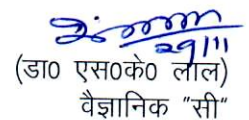 29/11
(डा0 एस0के0 लाल)
वैज्ञानिक "सी"